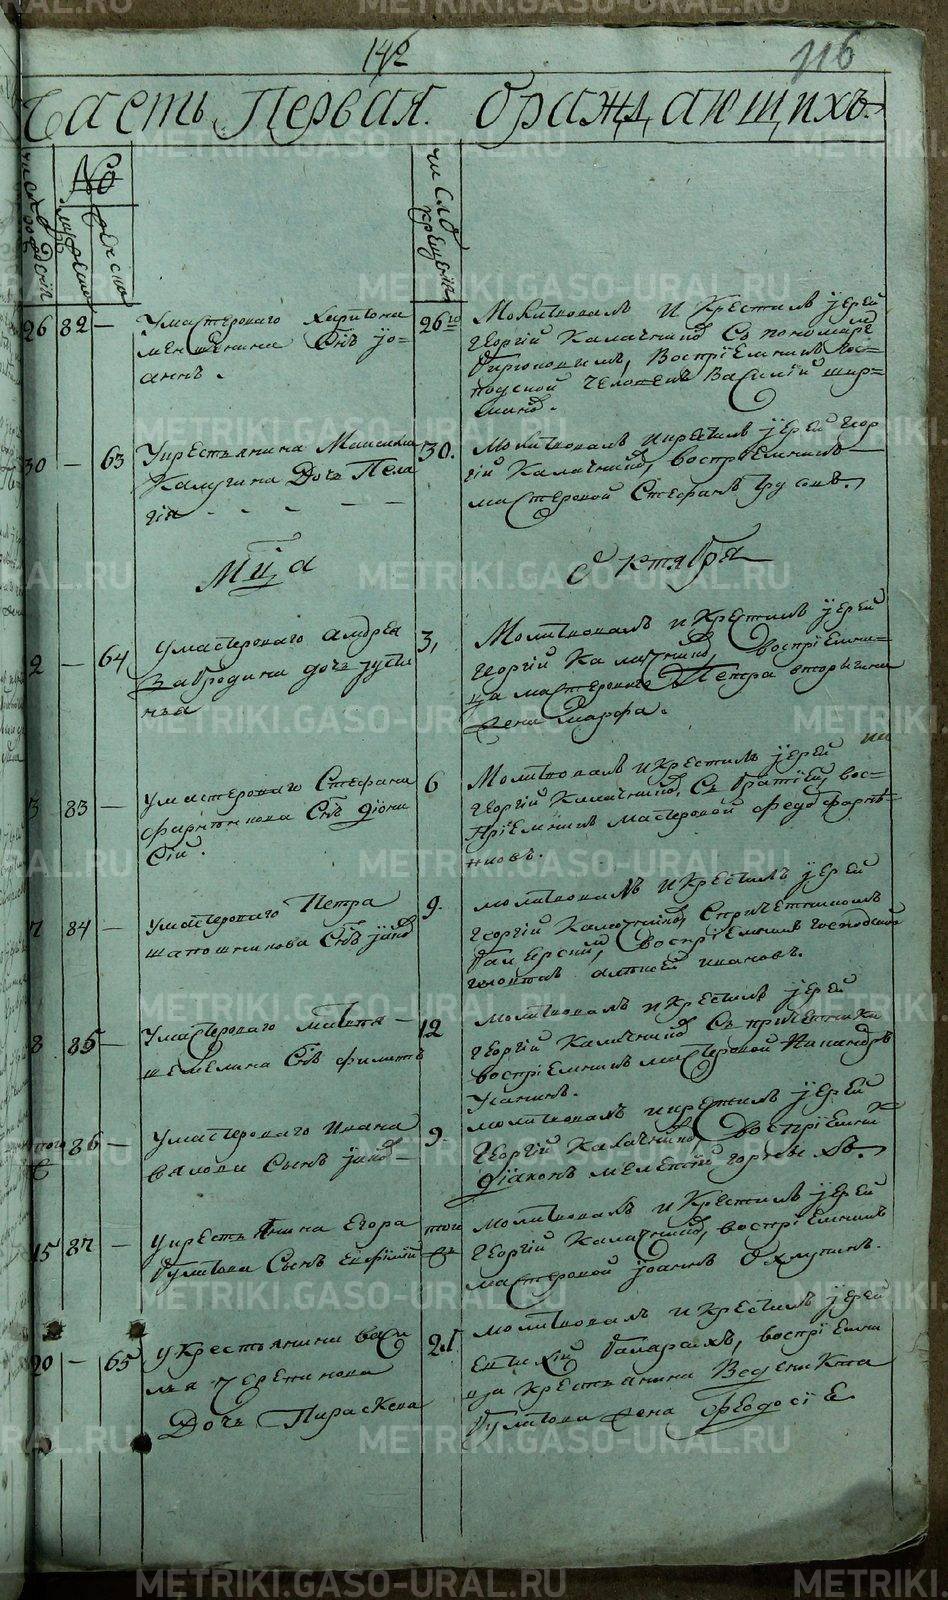 142
116
Часть Первая. ораждающихъ.
число рожденія
№
мужеска
женска
число крещенія
26
82
—
Умастероваго Харитона
Меншенина Сынъ Іо-
аннъ.
26го
Молитвовалъ и крестилъ іерей
Георгій Калачниковъ Съ пономаре
Воспріемникъ гос-
подской человекъ Василій Шир-
30
—
63
Укрестьянина Максима
Калугина Дочь Пела
гія
30.
Молитвовалъ икрестилъ іерей Геор
гій Калачниковъ, воспріемникъ
мастеровой Стефанъ Трусовъ.
Мца
Октября
2
—
64
Умастероваго Андрея
Забродина дочь Іусти
нья
3,
Молитвовалъ и крестилъ іерей
Георгій Калачниковъ, воспріемни-
ца мастероваго Петра
жена Марфа.
3
83
—
Умастероваго Стефана
Сынъ Діони
сій.
6
Молитвовалъ икрестилъ іерей
Георгій Калачниковъ, Съ братіей, вос-
пріемникъ мастеровой Федоръ
7
84
—
Умастероваго Петра
Шапошникова Сынъ Іяковъ
9.
молитвовалъ икрестилъ іерей
Георгій Калачниковъ, Спричетникомъ
воспріемникъ господской
человекъ Алексей Ивановъ.
8
85
—
Умастероваго Матвея
Шемелина Сынъ Филиппъ
12
Молитвовалъ икрестилъ іерей
Георгій Калачниковъ Съ причетники
воспріемникъ мастеровой Никаноръ
того
86
—
Умастероваго Ивана
Вялова Сынъ Іяковъ
9
молитвовалъ икрестилъ іерей
Георгій Калачниковъ воспріемникъ
діаконъ Мелетій Горновыхъ.
15
87
—
Укрестьянина Егора
Булатова Сынъ Евфимій
того
Молитвовалъ и крестилъ іерей
Георгій Калачниковъ, воспріемникъ
мастеровой Іоаннъ Охлупинъ.
20
—
65
Укрестьянина Васи
лья Черепанова
Дочь Параскева
21
молитвовалъ и крестилъ іерей
воспріемни
ца крестьянина Веденикта
Булатова жена Феодосіе
METRIKI.GASO-URAL.RU